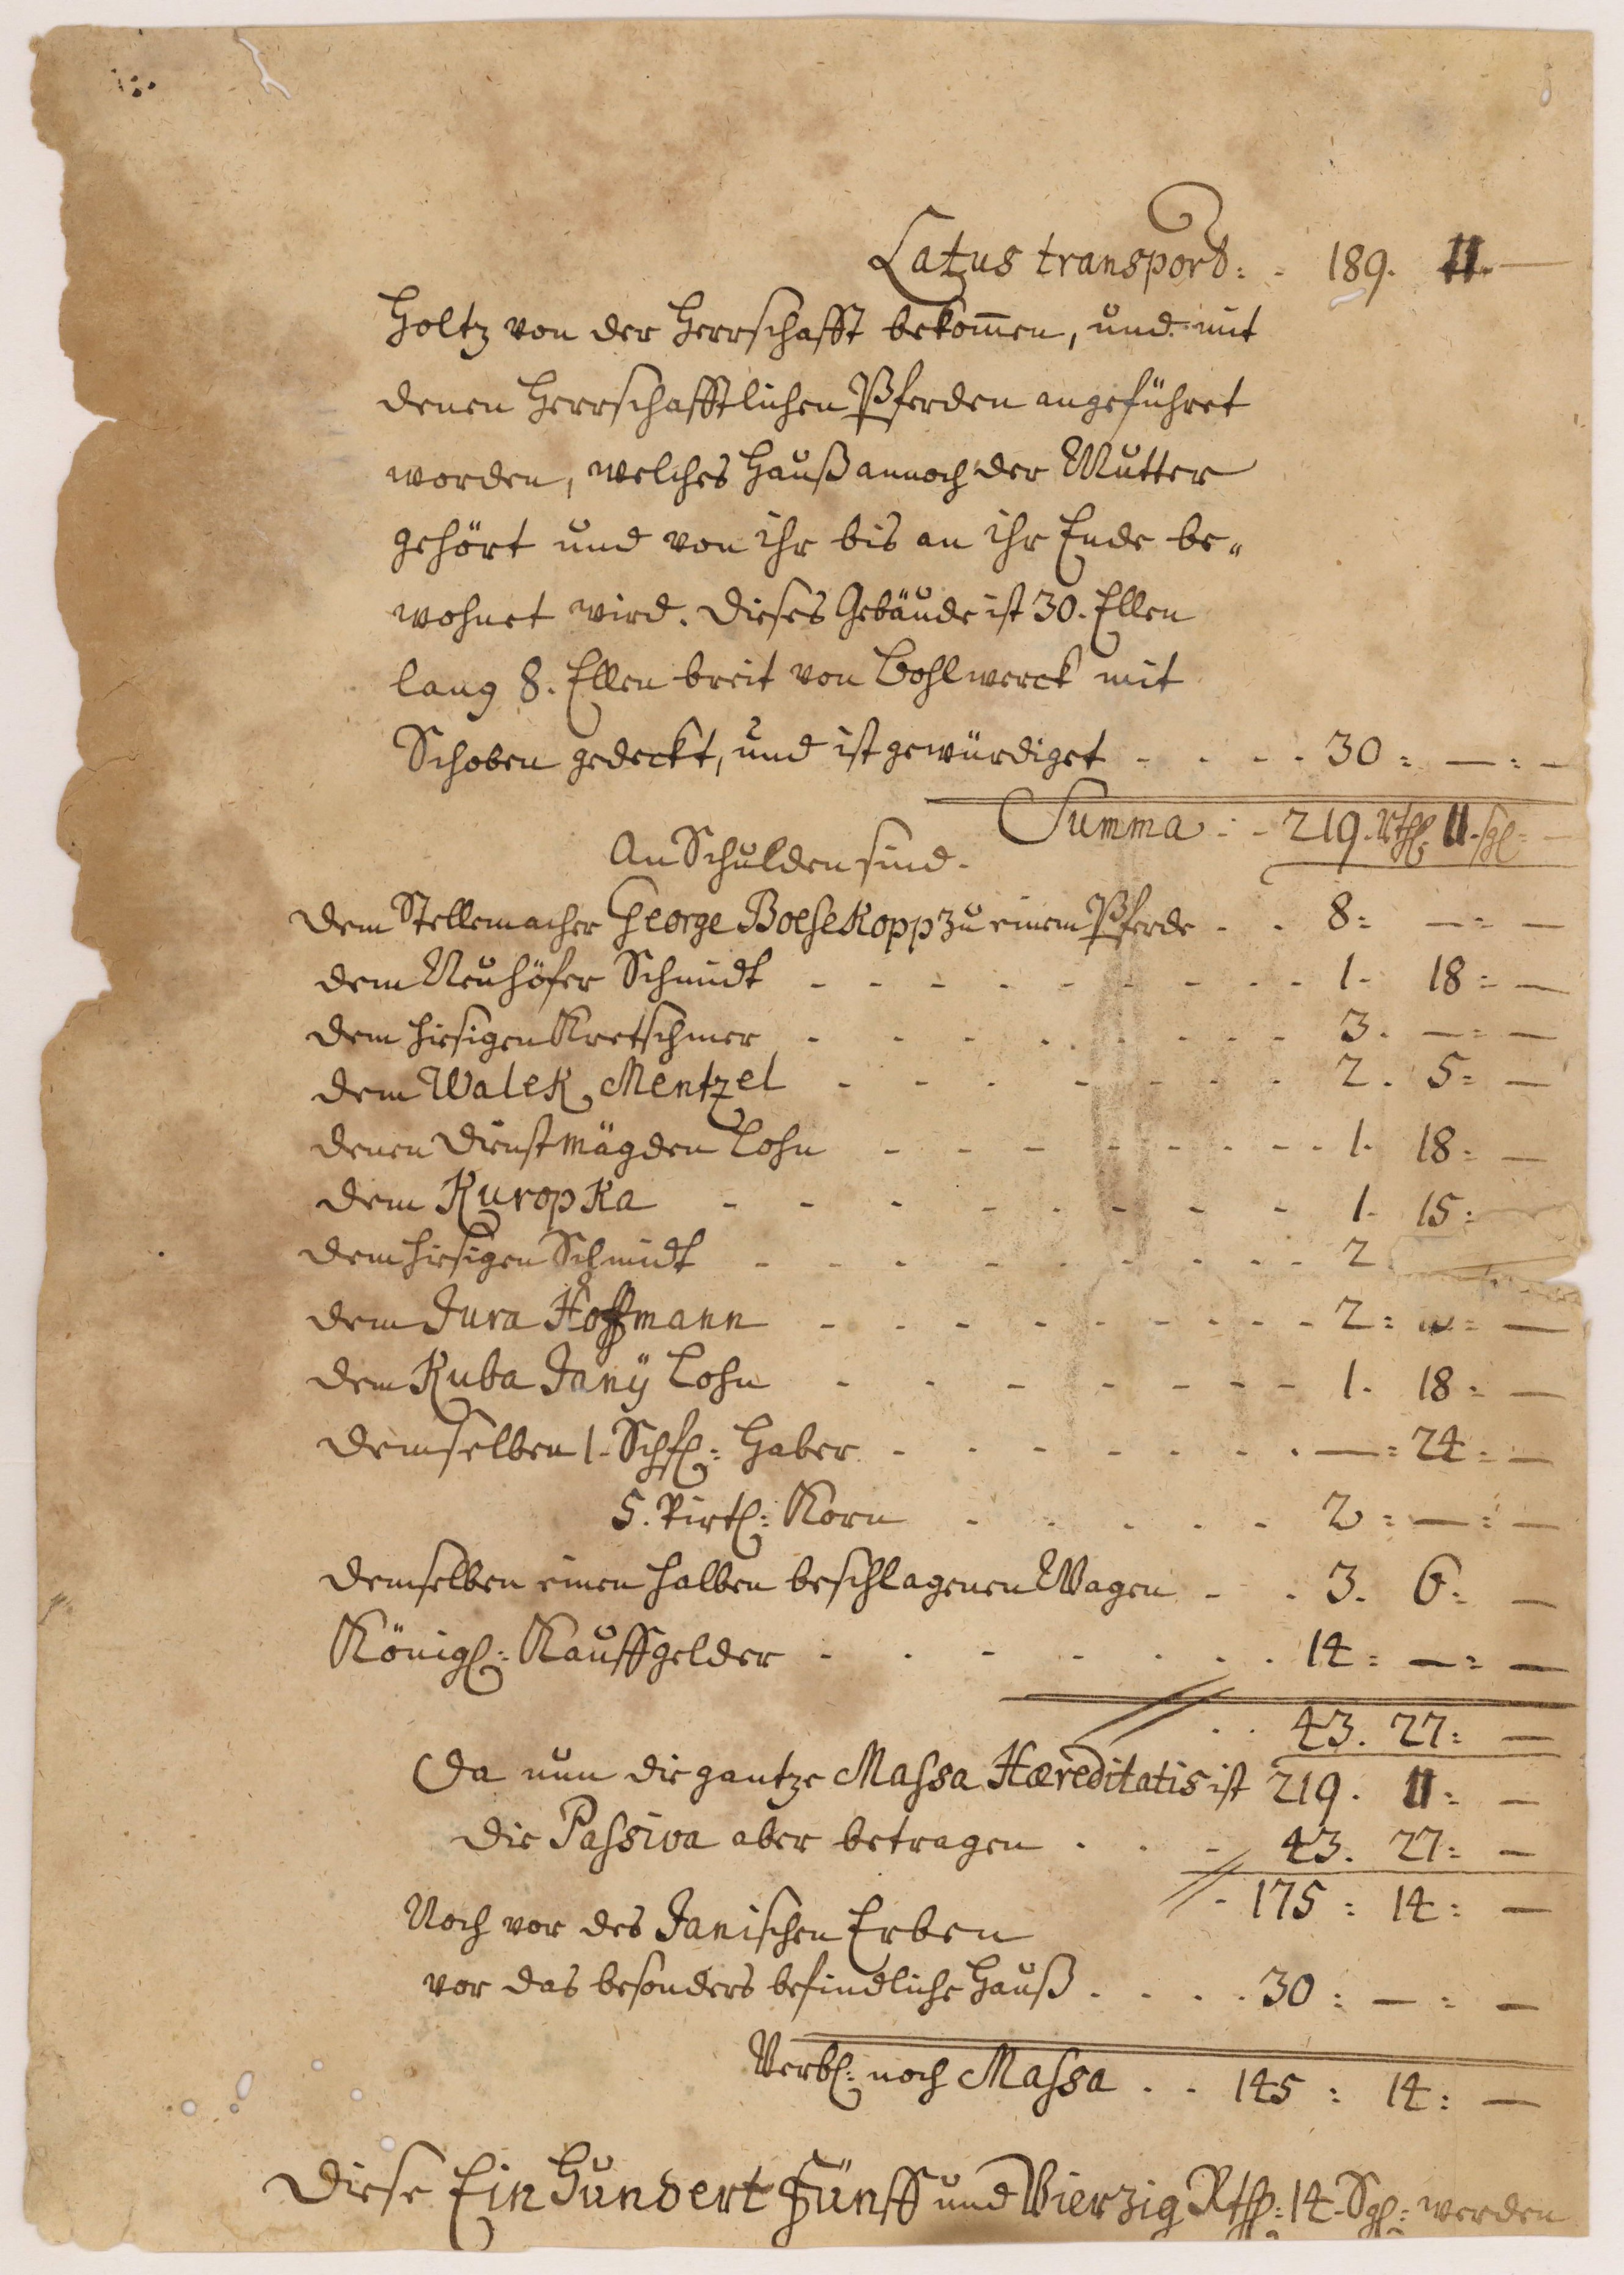 Latus transport: - 189. 11. —
Holtz von der Herrschafft bekom̄en, und mit
denen Herrschafftlichen Pferden angeführet
worden, welches Hauß annoch der Mutter
gehört und von ihr bis an ihr Ende be-
wohnet wird. Dieses Gebäude ist 30. Ellen
lang 8. Ellen breit von Bohlwerck mit
Schoben gedeckt, und ist gewürdiget - - - - 30 : — : —
Summa - - 219. Rthl: 11. sgl: —
An Schulden sind.
Dem Stellemacher George Boesekopp zu einem Pferde - - 8: — : —
dem Neuhöfer Schmidt - - - - - - - - - 1. 18 : —
dem hiesigen Kretschmer - - - - - - - - 3. — : —
dem Walek Mentzel - - - - - - - 2. 5 : —
denen Dienstmägden Lohn - - - - - - - - 1. 18 : —
dem Kuropka - - - - - - - - 1. 15 :
dem hiesigen Schmidt - - - - - - - - - 2
dem Jura Hoffmann - - - - - - - - - 2 : — : —
dem Kuba Janÿ Lohn - - - - - - - - 1. 18 : —
demselben 1. Schfl: Haber - - - - - - - - — : 24 : —
5. Virtl: Korn - - - - - - 2 : — : —
demselben einen halben beschlagenen Wagen - - 3. 6 : —
Königl: Kauffgelder - - - - - - - 14 : — : —
- - 43. 27 : —
Da nun die gantze Massa Hæreditatis ist 219. 11 : —
die Passiva aber betragen - - - 43. 27 : —
- 175 : 14 : —
Noch vor des Janischen Erben
vor das besonders befindliche Hauß - - - - 30 : — : —
Verbl: noch Massa - - 145 : 14 : —
Diese Ein Hundert Fünff und Vierzig Rthl: 14. Sgl: werden